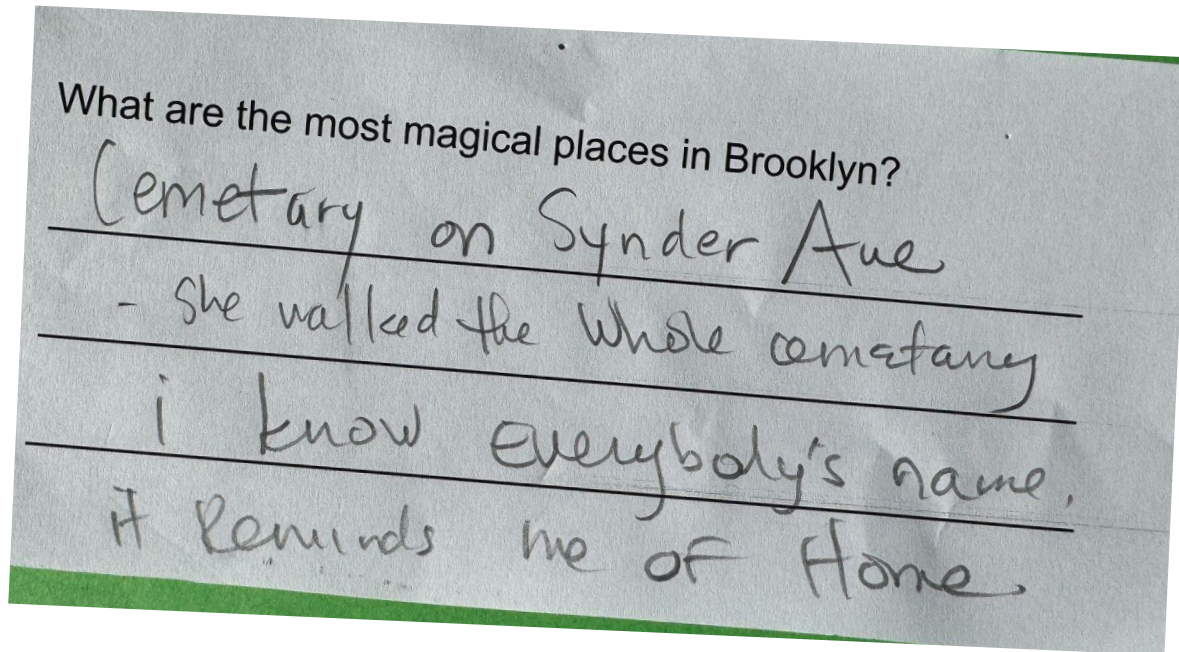 What are the most magical places in Brooklyn?
Cemetary on Synder Ave
- She walked the Whole cemetary
i know everybody's name.
it Reminds me of Home